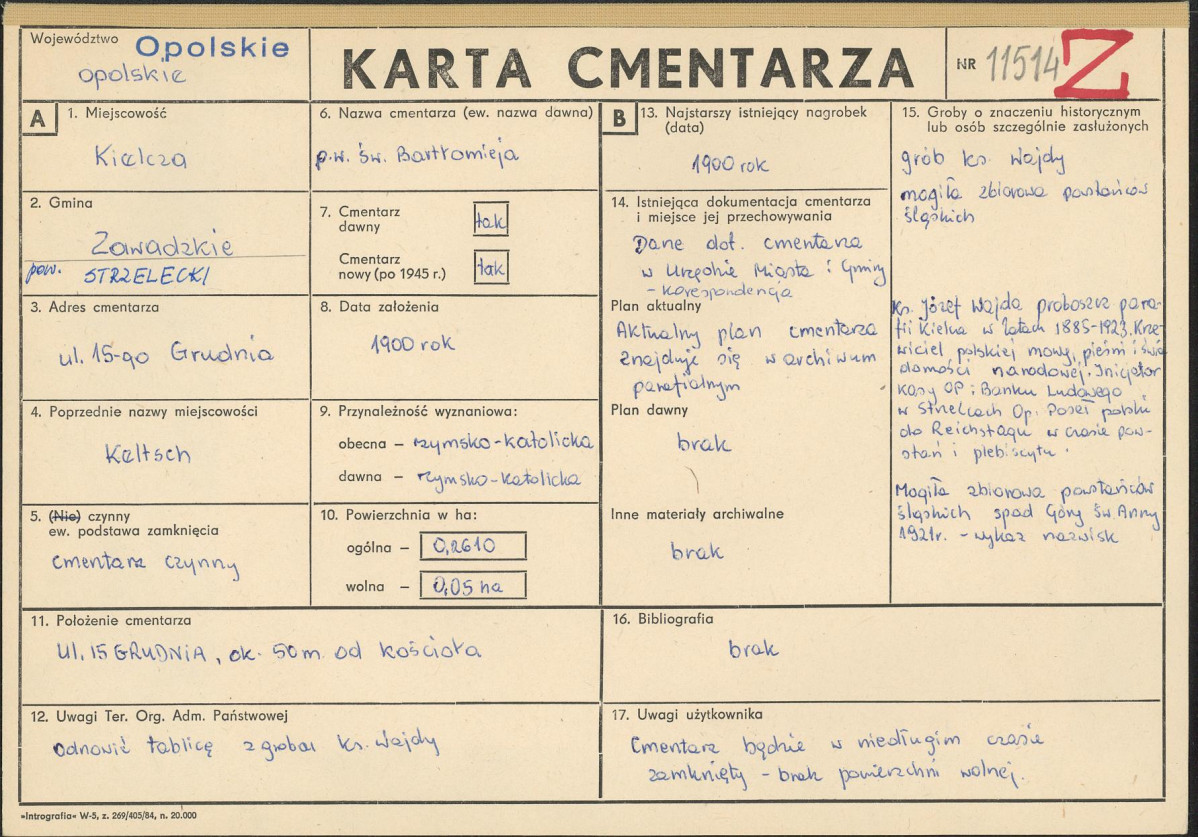 Województwo Opolskie
opolskie
KARTA CMENTARZA
NR 11514 Z
A
1. Miejscowość
Kielcza
2. Gmina
Zawadzkie
pow. STRZELECKI
3. Adres cmentarza
ul. 15-go Grudnia
4. Poprzednie nazwy miejscowości
Keltsch
5. (Nie) czynny
ew. podstawa zamknięcia
cmentarz czynny
6. Nazwa cmentarza (ew. nazwa dawna)
p.w. św. Bartłomieja
7. Cmentarz
dawny tak
Cmentarz
nowy (po 1945 r.) tak
8. Data założenia
1900 rok
9. Przynależność wyznaniowa:
obecna – rzymsko-katolicka
dawna – rzymsko-katolicka
10. Powierzchnia w ha:
ogólna – 0,2610
wolna – 0,05 ha
11. Położenie cmentarza
Ul. 15 GRUDNIA, ok. 50 m od kościoła
12. Uwagi Ter. Org. Adm. Państwowej
odnowić tablicę z grobu ks. Wajdy
B
13. Najstarszy istniejący nagrobek
(data)
1900 rok
14. Istniejąca dokumentacja cmentarza
i miejsce jej przechowywania
Dane dot. cmentarza
w Urzędzie Miasta i Gminy
- korespondencja
Plan aktualny
Aktualny plan cmentarza
znajduje się w archiwum
parafialnym
Plan dawny
brak
Inne materiały archiwalne
brak
15. Groby o znaczeniu historycznym
lub osób szczególnie zasłużonych
grób ks. Wajdy
mogiła zbiorowa powstańców
śląskich
Ks. Józef Wajda proboszcz para-
fii Kielcza w latach 1885-1923. Krze-
wiciel polskiej mowy, pieśni i świa
domości narodowej. Inicjator
Kasy OP i Banku Ludowego
w Strzelcach Op. Poseł polski
do Reichstagu w czasie pow-
stań i plebiscytu.
Mogiła zbiorowa powstańców
śląskich spod Góry Św. Anny
1921r. - wykaz nazwisk
16. Bibliografia
brak
17. Uwagi użytkownika
Cmentarz będzie w niedługim czasie
zamknięty - brak powierzchni wolnej.
»Intrografia« W-5, z. 269/405/84, n. 20.000